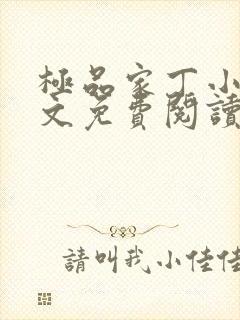 極品家丁小
文免費閱讀
請叫我小佳佳